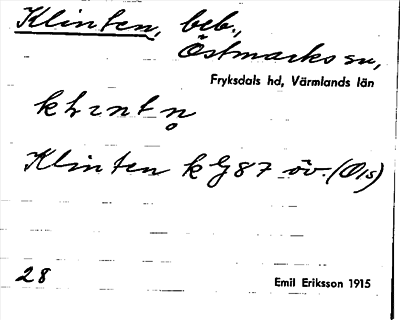 Klinten, beb.,
Östmarks sn,
Fryksdals hd, Värmlands län
Klinten k G87 öv. (Ois)
28
Emil Eriksson 1915